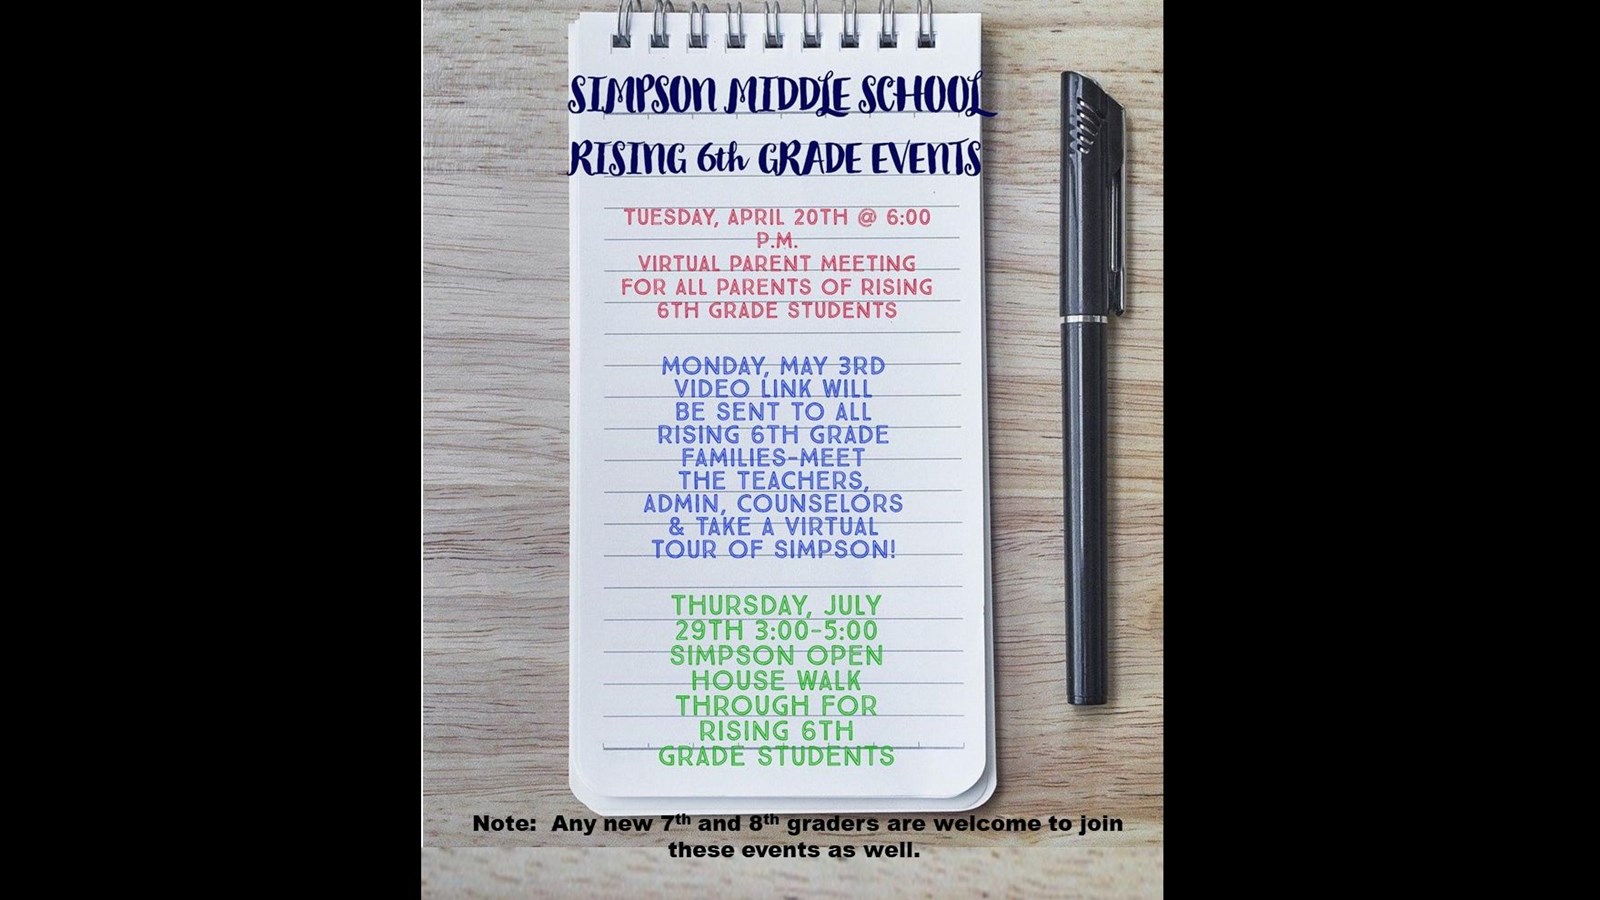 SIMPSON MIDDLE SCHOOL
RISING 6th GRADE EVENTS
TUESDAY, APRIL 20TH @ 6:00
P.M.
VIRTUAL PARENT MEETING
FOR ALL PARENTS OF RISING
6TH GRADE STUDENTS
MONDAY, MAY 3RD
VIDEO LINK WILL
BE SENT TO ALL
RISING 6TH GRADE
FAMILIES-MEET
THE TEACHERS,
ADMIN, COUNSELORS
& TAKE A VIRTUAL
TOUR OF SIMPSON!
THURSDAY, JULY
29TH 3:00-5:00
SIMPSON OPEN
HOUSE WALK
THROUGH FOR
RISING 6TH
GRADE STUDENTS
Note: Any new 7th and 8th graders are welcome to join
these events as well.